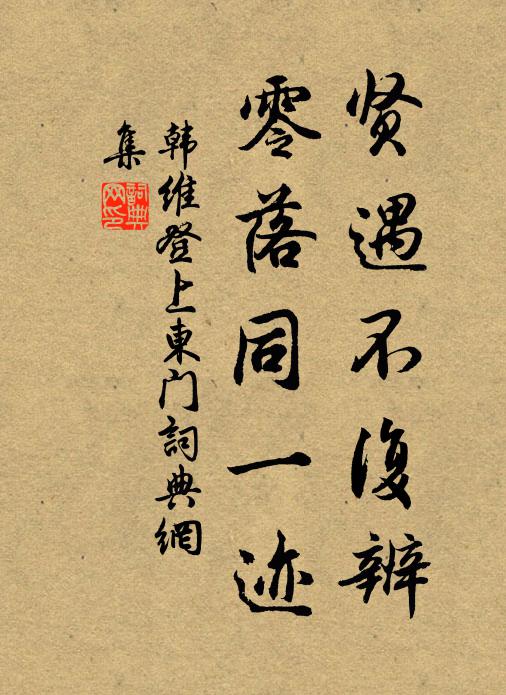 贤遇不復辨
零落同一迹
韩维登上東门詞典網
集
詞典
网印